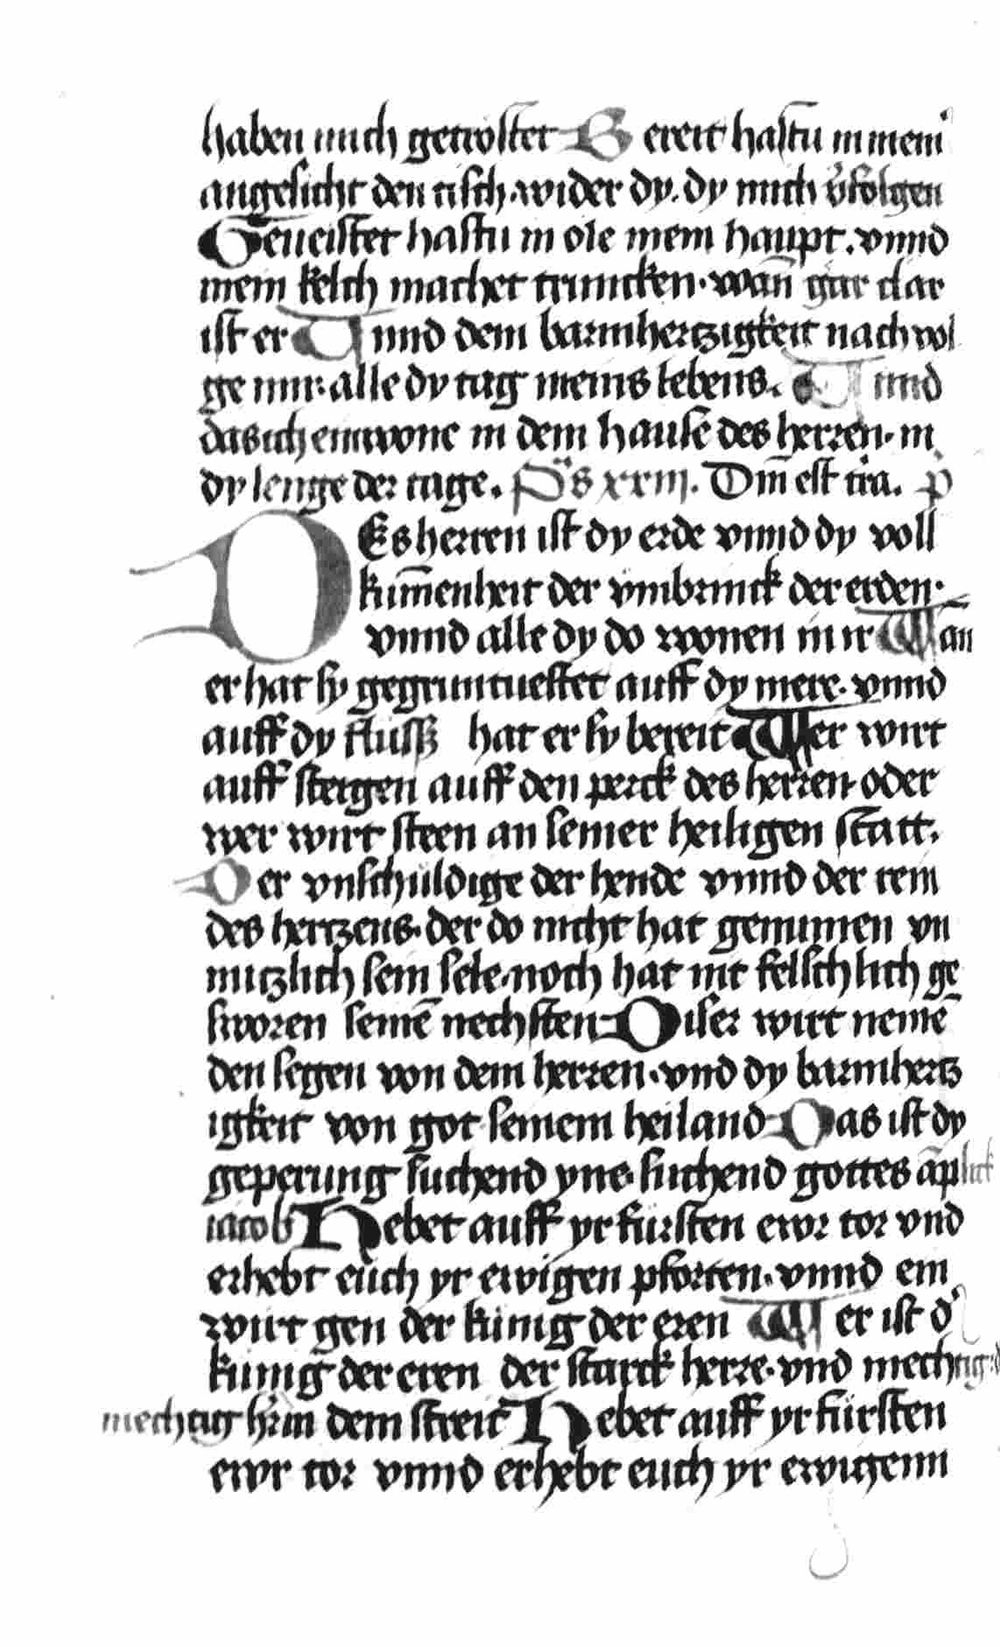 haben mich getröstet Bereit hastu in meim̄
angesicht den tisch. wider dy. dy mich v̓folgen
Geueistet hastu in ole mein haupt. vnnd
mein kelch machet truncken. wan̄ gar clar
ist er Vnnd dein barmhertzigkeit nach vol
ge mir. alle dy tag meins lebens. Vnnd
das ich einwone in dem hause des herren. in
dy lenge der tage. Ps xxiij. Dm̄ est tr̄a. p̄
DEs herren ist dy erde vnnd dy voll
kum̄enheit der vmbrinck der erden.
vnnd alle dy do wonen in ir Wan̄
er hat sy gegruntuestet auff dy mere. vnnd
auff dy flüssz hat er sy bereit Wer wirt
auff steigen auff den perck des herren. oder
wer wirt steen an seiner heiligen statt.
Der vnschüldige der hende vnnd der rein
des hertzens. der do nicht hat genumen vn
nutzlich sein sele. noch hat nit felschlich ge
sworen seinē nechsten Diser wirt nemē
den segen von dem herren. vnd dy barmhertz
igkeit von got seinem heiland Das ist dy
geperung suchend yne. suchend gottes āplick
iacob Hebet auff yr fürsten ewr tor vnd
erhebt euch yr ewigen pforten. vnnd ein
wirt gen der künig der eren Wer ist d̓
künig der eren der starck herre. vnd mechtig
mechtig hr̄ in dem streit Hebet auff yr fürsten
ewr tor vnnd erhebt euch yr ewigenn